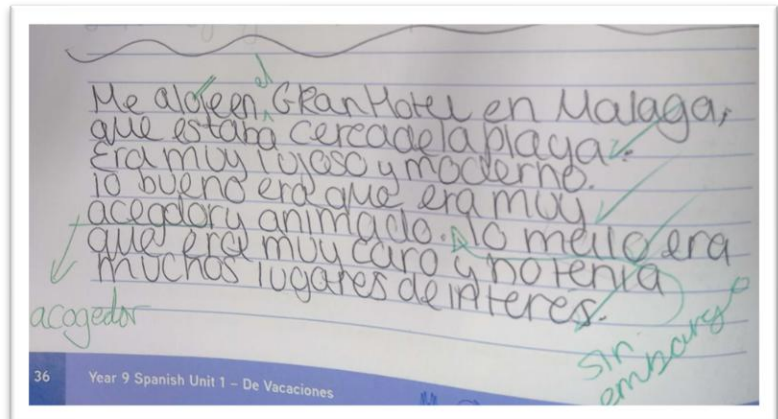 el
Me alojé en GRan Hotel en Malaga,
que estaba cerca de la playa.
Era muy lujoso y moderno.
lo bueno era que era muy
acegdor y animado. lo malo era
que era muy caro y no tenia
muchos lugares de interes.
acogedor
sin
embargo
36 Year 9 Spanish Unit 1 – De Vacaciones